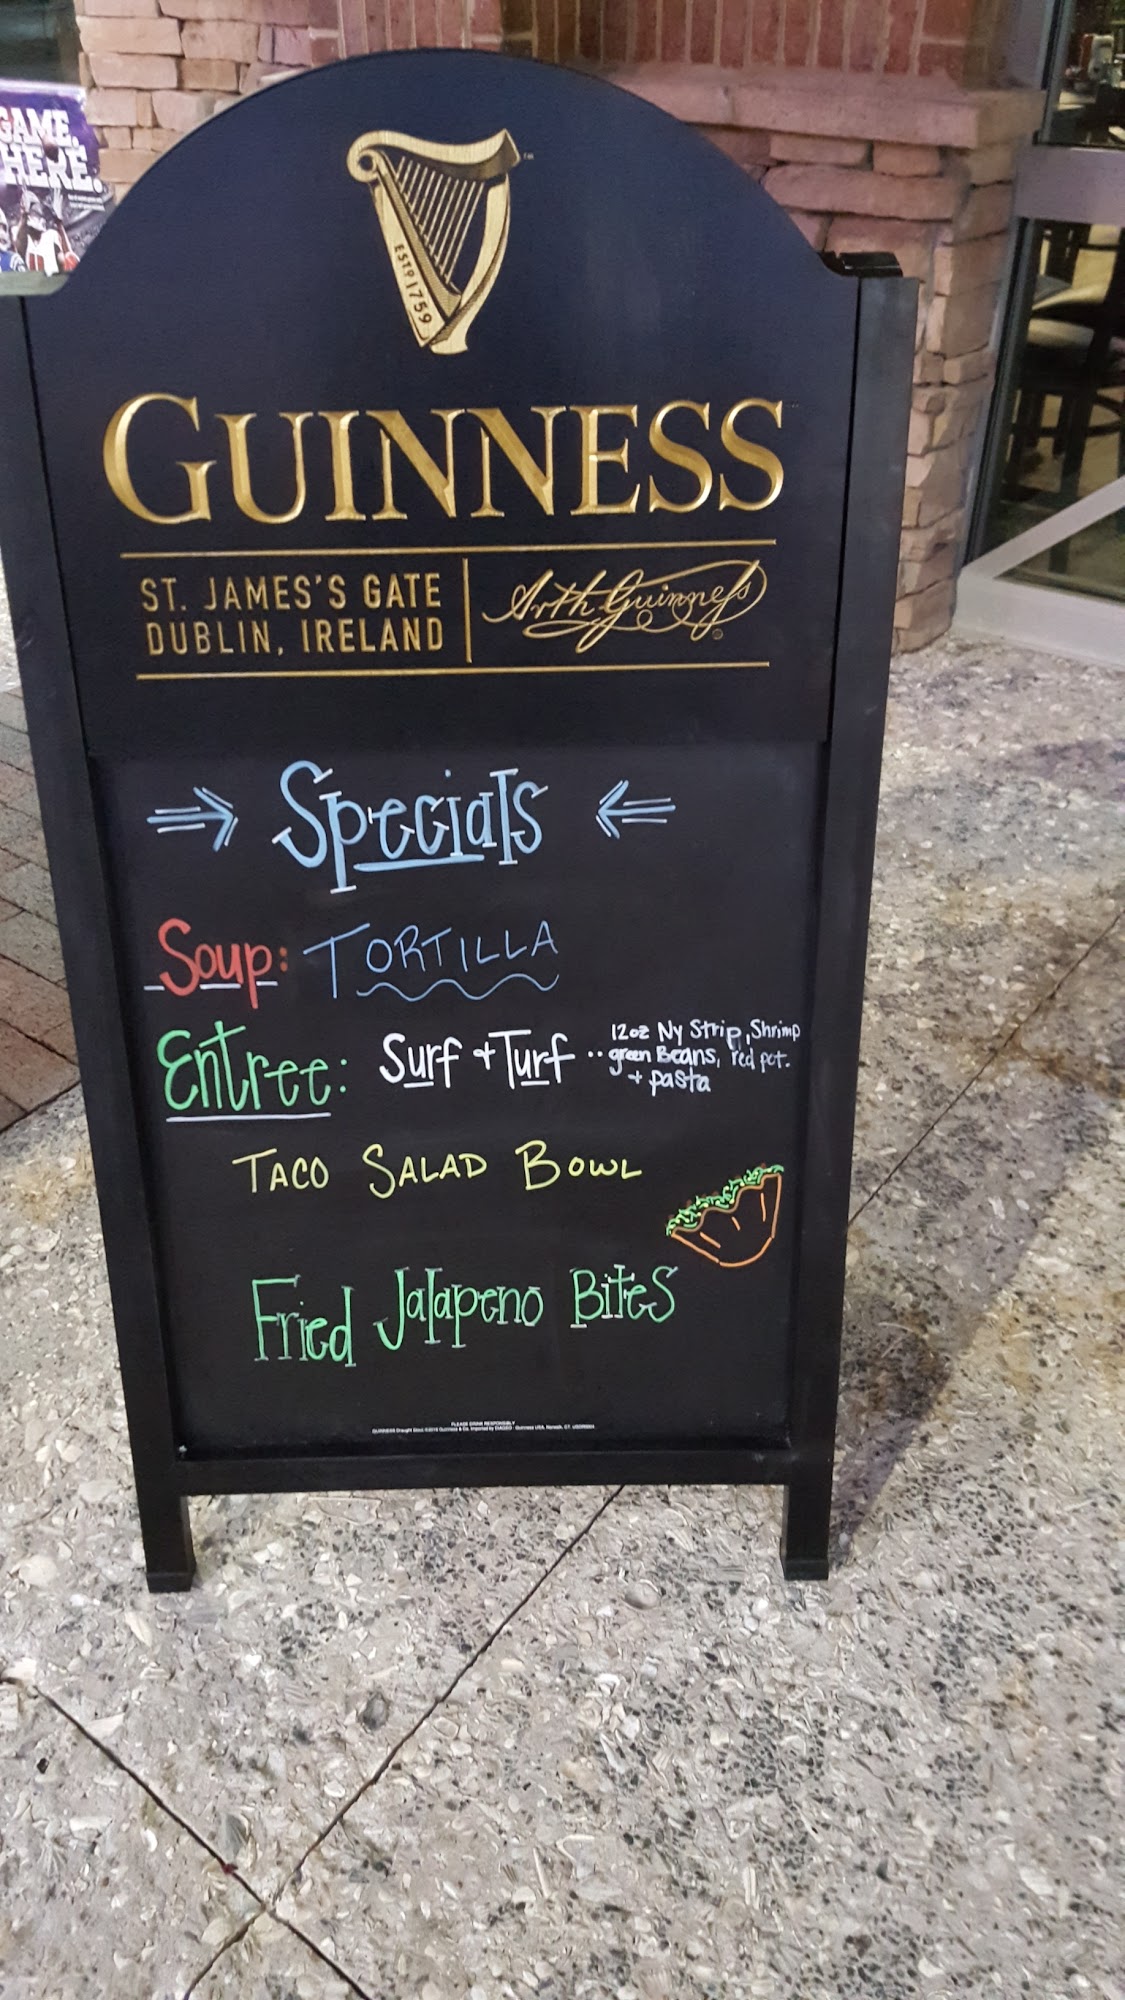 GAME.
HERE.
ESTD 1759
™
GUINNESS
ST. JAMES'S GATE
DUBLIN, IRELAND
Arth Guinness
®
Specials
Soup: TORTILLA
Entree: Surf + Turf .. 12oz Ny Strip, Shrimp
green Beans, red pot.
+ pasta
TACO SALAD BOWL
Fried Jalapeno Bites
PLEASE DRINK RESPONSIBLY